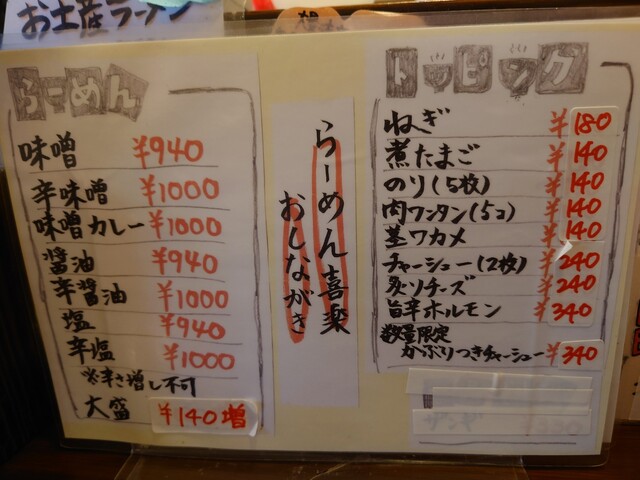 お土産ラーメン
らーめん
味噌 ¥940
辛味噌 ¥1000
味噌カレー ¥1000
醤油 ¥940
辛醤油 ¥1000
塩 ¥940
辛塩 ¥1000
※辛さ増し不可
大盛 ¥140増
らーめん喜楽
おしながき
トッピング
ねぎ ¥180
煮たまご ¥140
のり(5枚) ¥140
肉ワンタン(5コ) ¥140
茎ワカメ ¥140
チャーシュー(2枚) ¥240
炙りチーズ ¥240
旨辛ホルモン ¥340
数量限定
かぶりつきチャーシュー ¥340